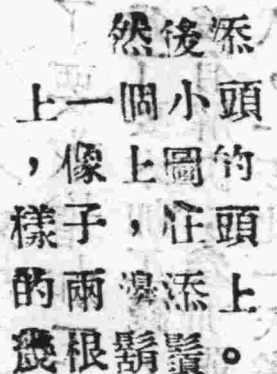 然後添
上一個小頭
，像上圖的
樣子，在頭
的兩邊添上
幾根鬍鬚。